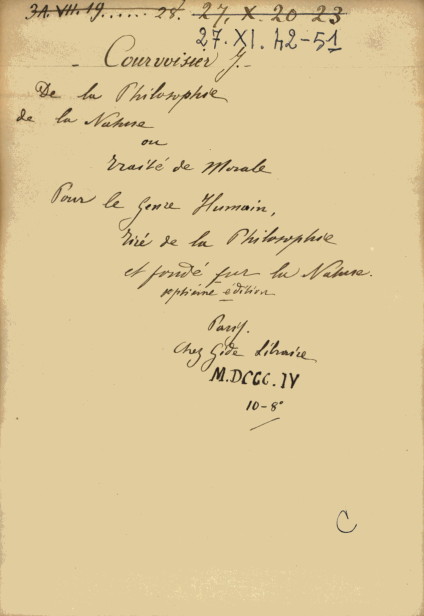 31. VII. 19....... 28. 27. X. 20 23
27. XI. 42-51
Courvoisier J.
De la Philosophie
de la Nature
ou
traité de Morale
Pour le genre Humain,
tiré de la Philosophie
et fondé sur la Nature.
septième édition
Paris.
chez Gide Libraire
M.DCCC.IV
10-8°
C